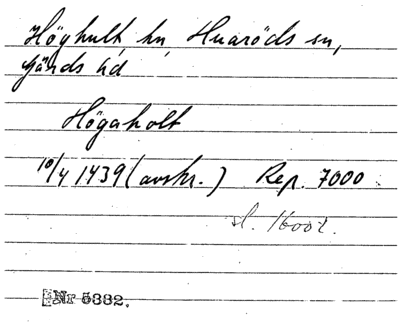 Höghult, hn, Huaröds sn,
Gärds hd
Högaholt
10/4 1439 (avskr.) Rep. 7000
Nr 5382.